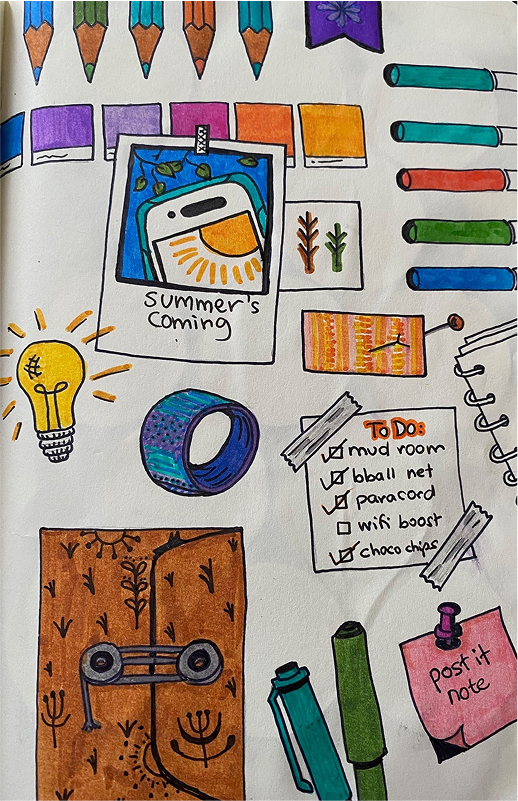 summer's
coming
To Do:
mud room
bball net
paracord
wifi boost
choco chips
post it
note